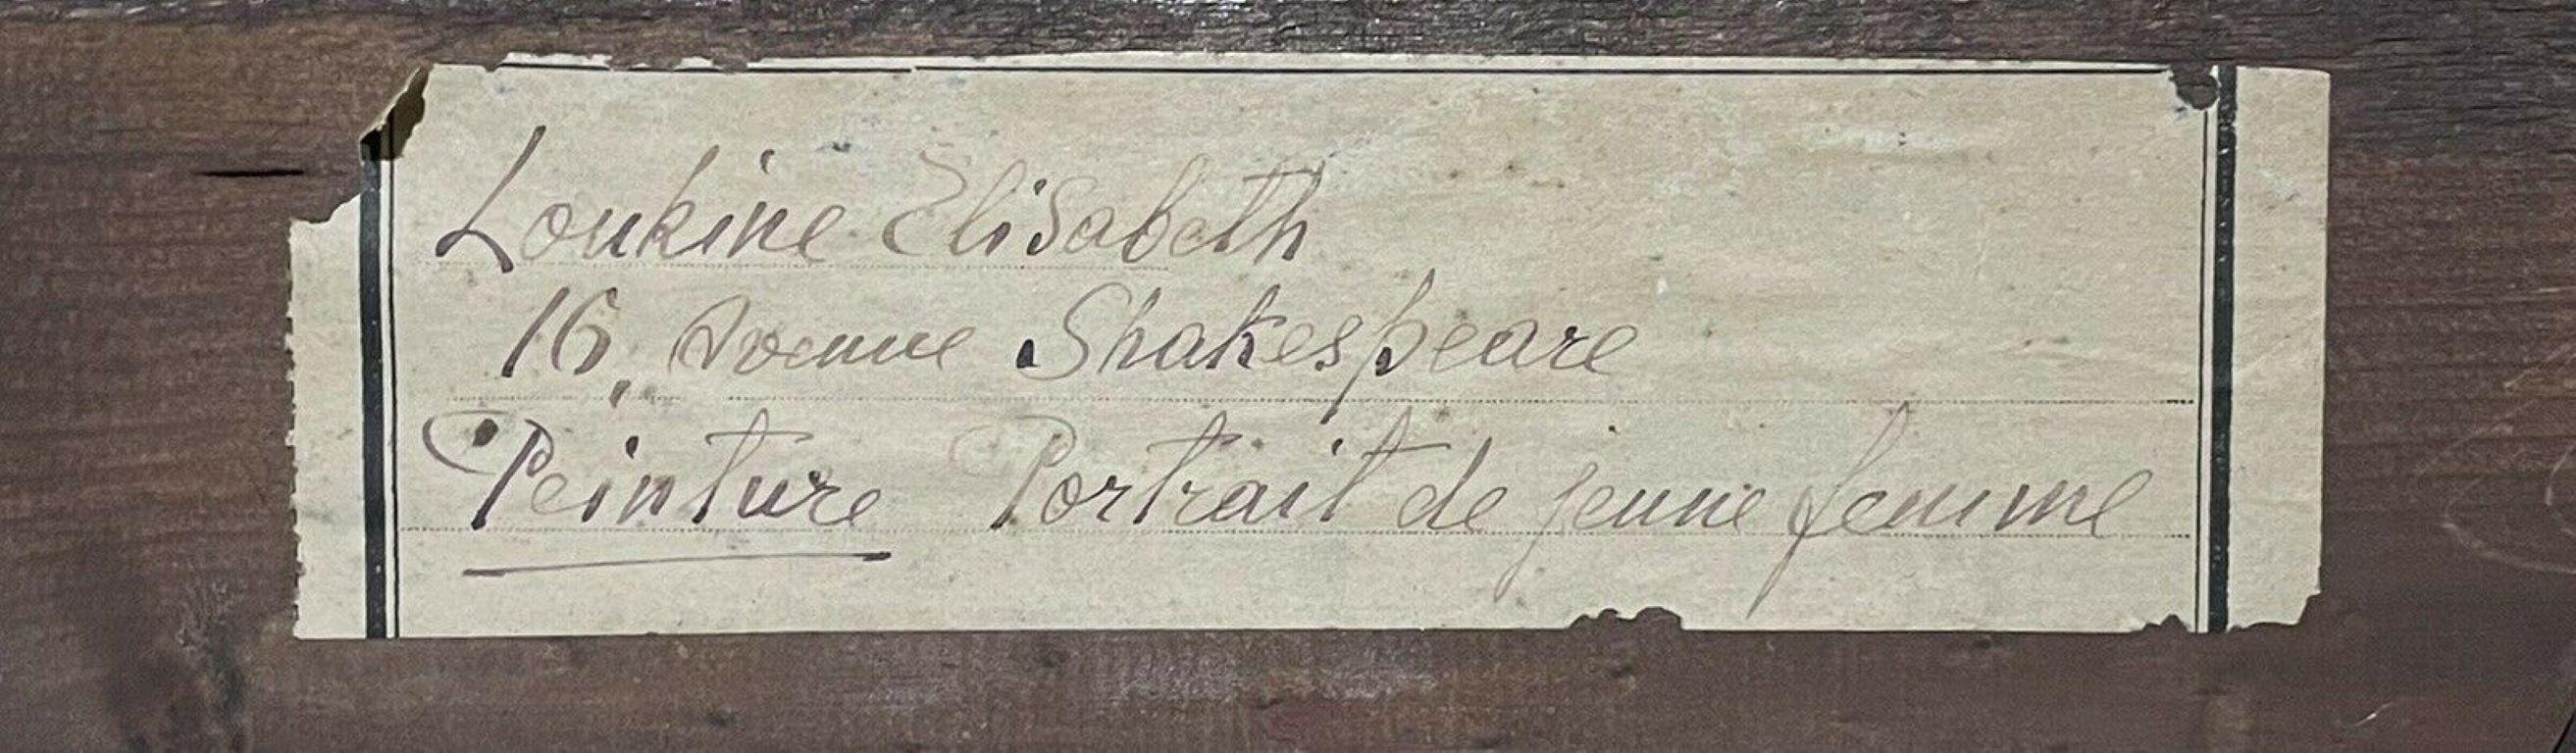 Loukine Elisabeth
16, Avenue Shakespeare
Peinture Portrait de jeune femme